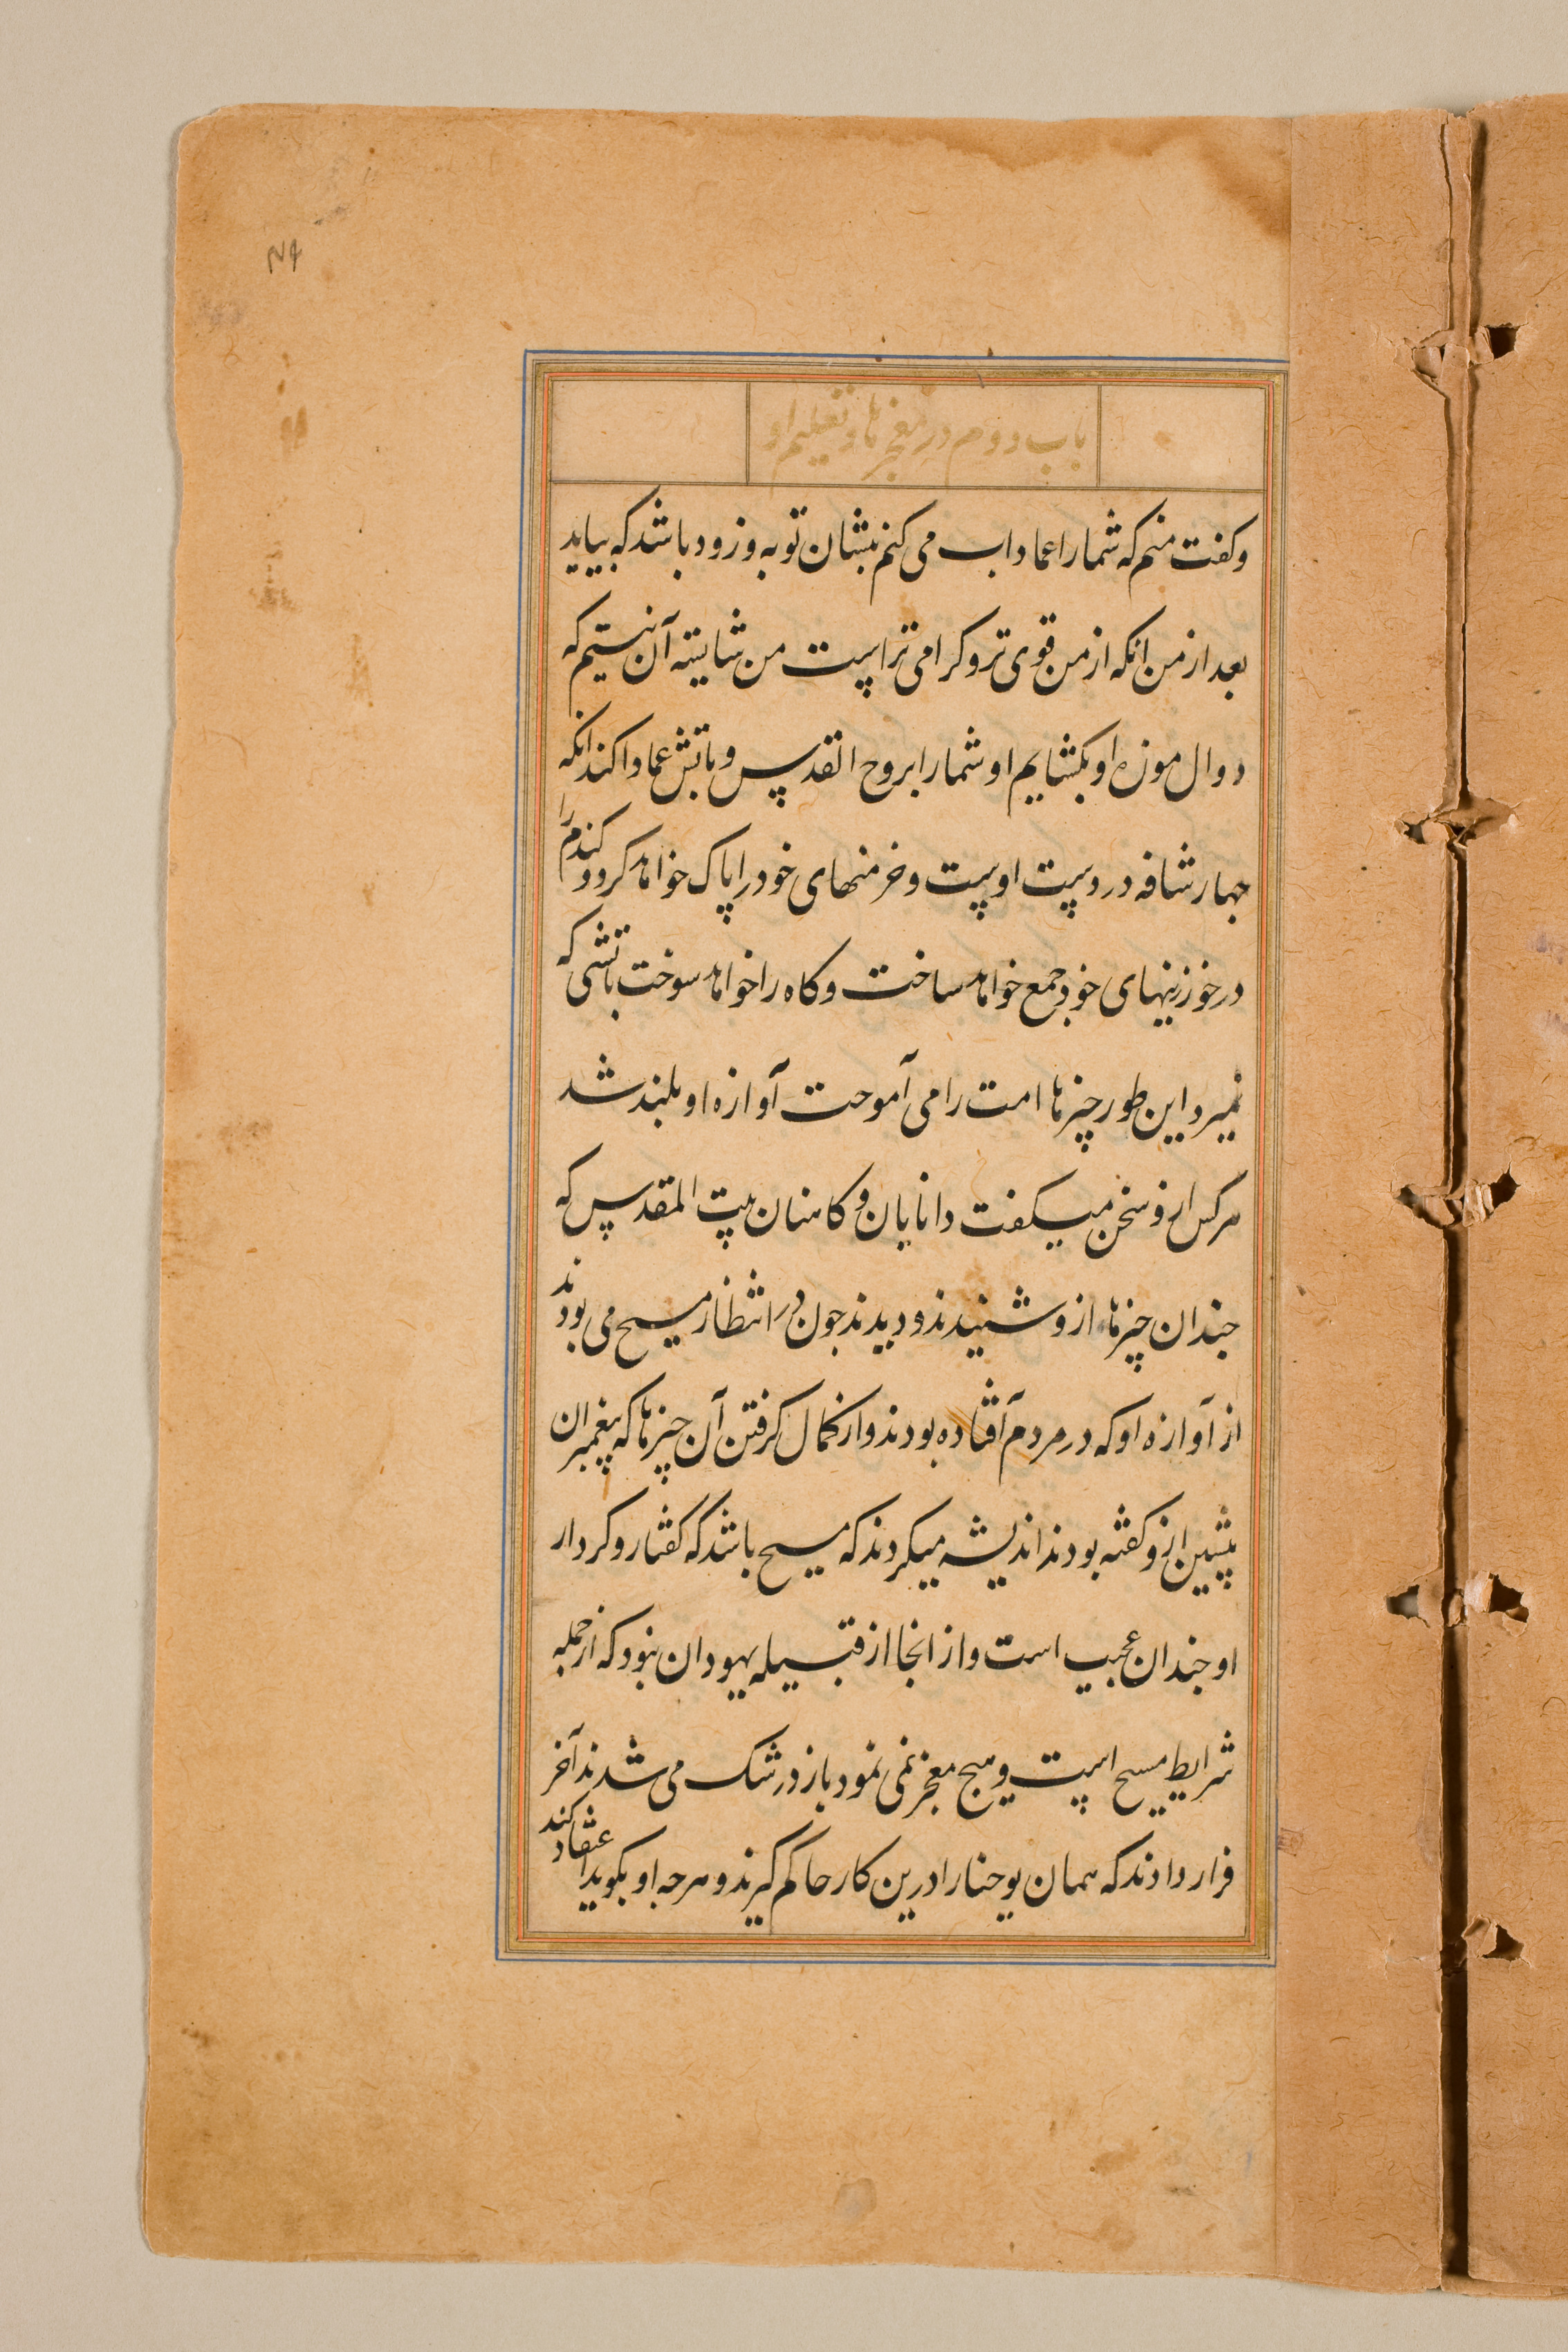 باب دووم در معجزها و تعلیم او
وکفت منم که شما را عماداب می کنم بنشان توبه و زود باشد که بیاید
بعد از من انکه از من قوی تر و کرامی تر است من شایسته آن نیستم که
دوال موزه او بکشایم او شما را بروح القدس و باتش عمادا کند انکه
جهار شافه در دست اوست و خرمنهای خود را پاک خواهد کرد و کندم را
در خوزینهای خود جمع خواهد ساخت و کاه را خواهد سوخت باتشی که
نمیرد این طور چیزها امت را می آموخت آوازه او بلند شد
هرکس ازو سخن میکفت دانایان و کاهنان بیت المقدس که
جندان چیزها ازو شنیدند و دیدند جون در انتظار مسیح می بودند
از آوازه او که در مردم آفتاده بودند و از کمال کرفتن آن چیزها که پیغمبران
پیشین ازو کفته بودند اندیشه میکردند که مسیح باشد که کفتار و کردار
او جندان عجیب است و از انجا از قبیله یهودان نبود که از جمله
شرایط مسیح است و هیج معجز نمی نمود باز در شک می شدند آخر
قرار دادند که همان یوحنا را درین کار حاکم گیرند و هرجه او بکوید اعتقاد کند